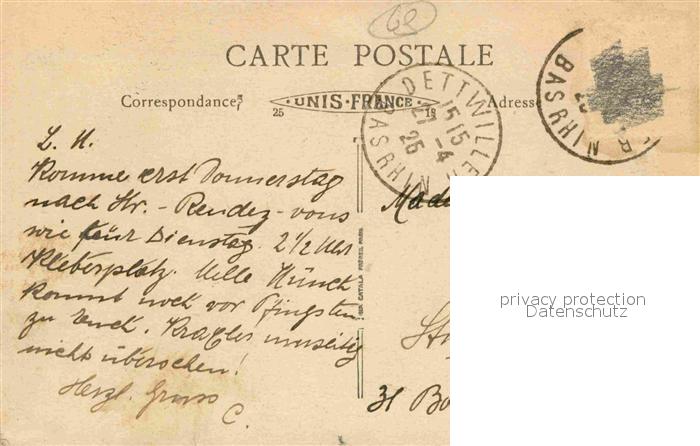 62
CARTE POSTALE
Correspondance
UNIS-FRANCE
Adresse
25 19
DETTWILLER
15 15
21 -4
26
BAS RHIN
BAS RHIN
L. M.
Komme erst Donnerstag
nach Str. - Rendez-vous
wie für Dienstag 2 1/2 Uhr
Kleberplatz. Melle Münch
kommt noch vor Pfingsten
zu Euch. Kragles umseitig
nicht übersehen!
Herzl. Gruss
C.
CATALA FRÈRES, PARIS
Mada
St
31 Bo
privacy protection
Datenschutz